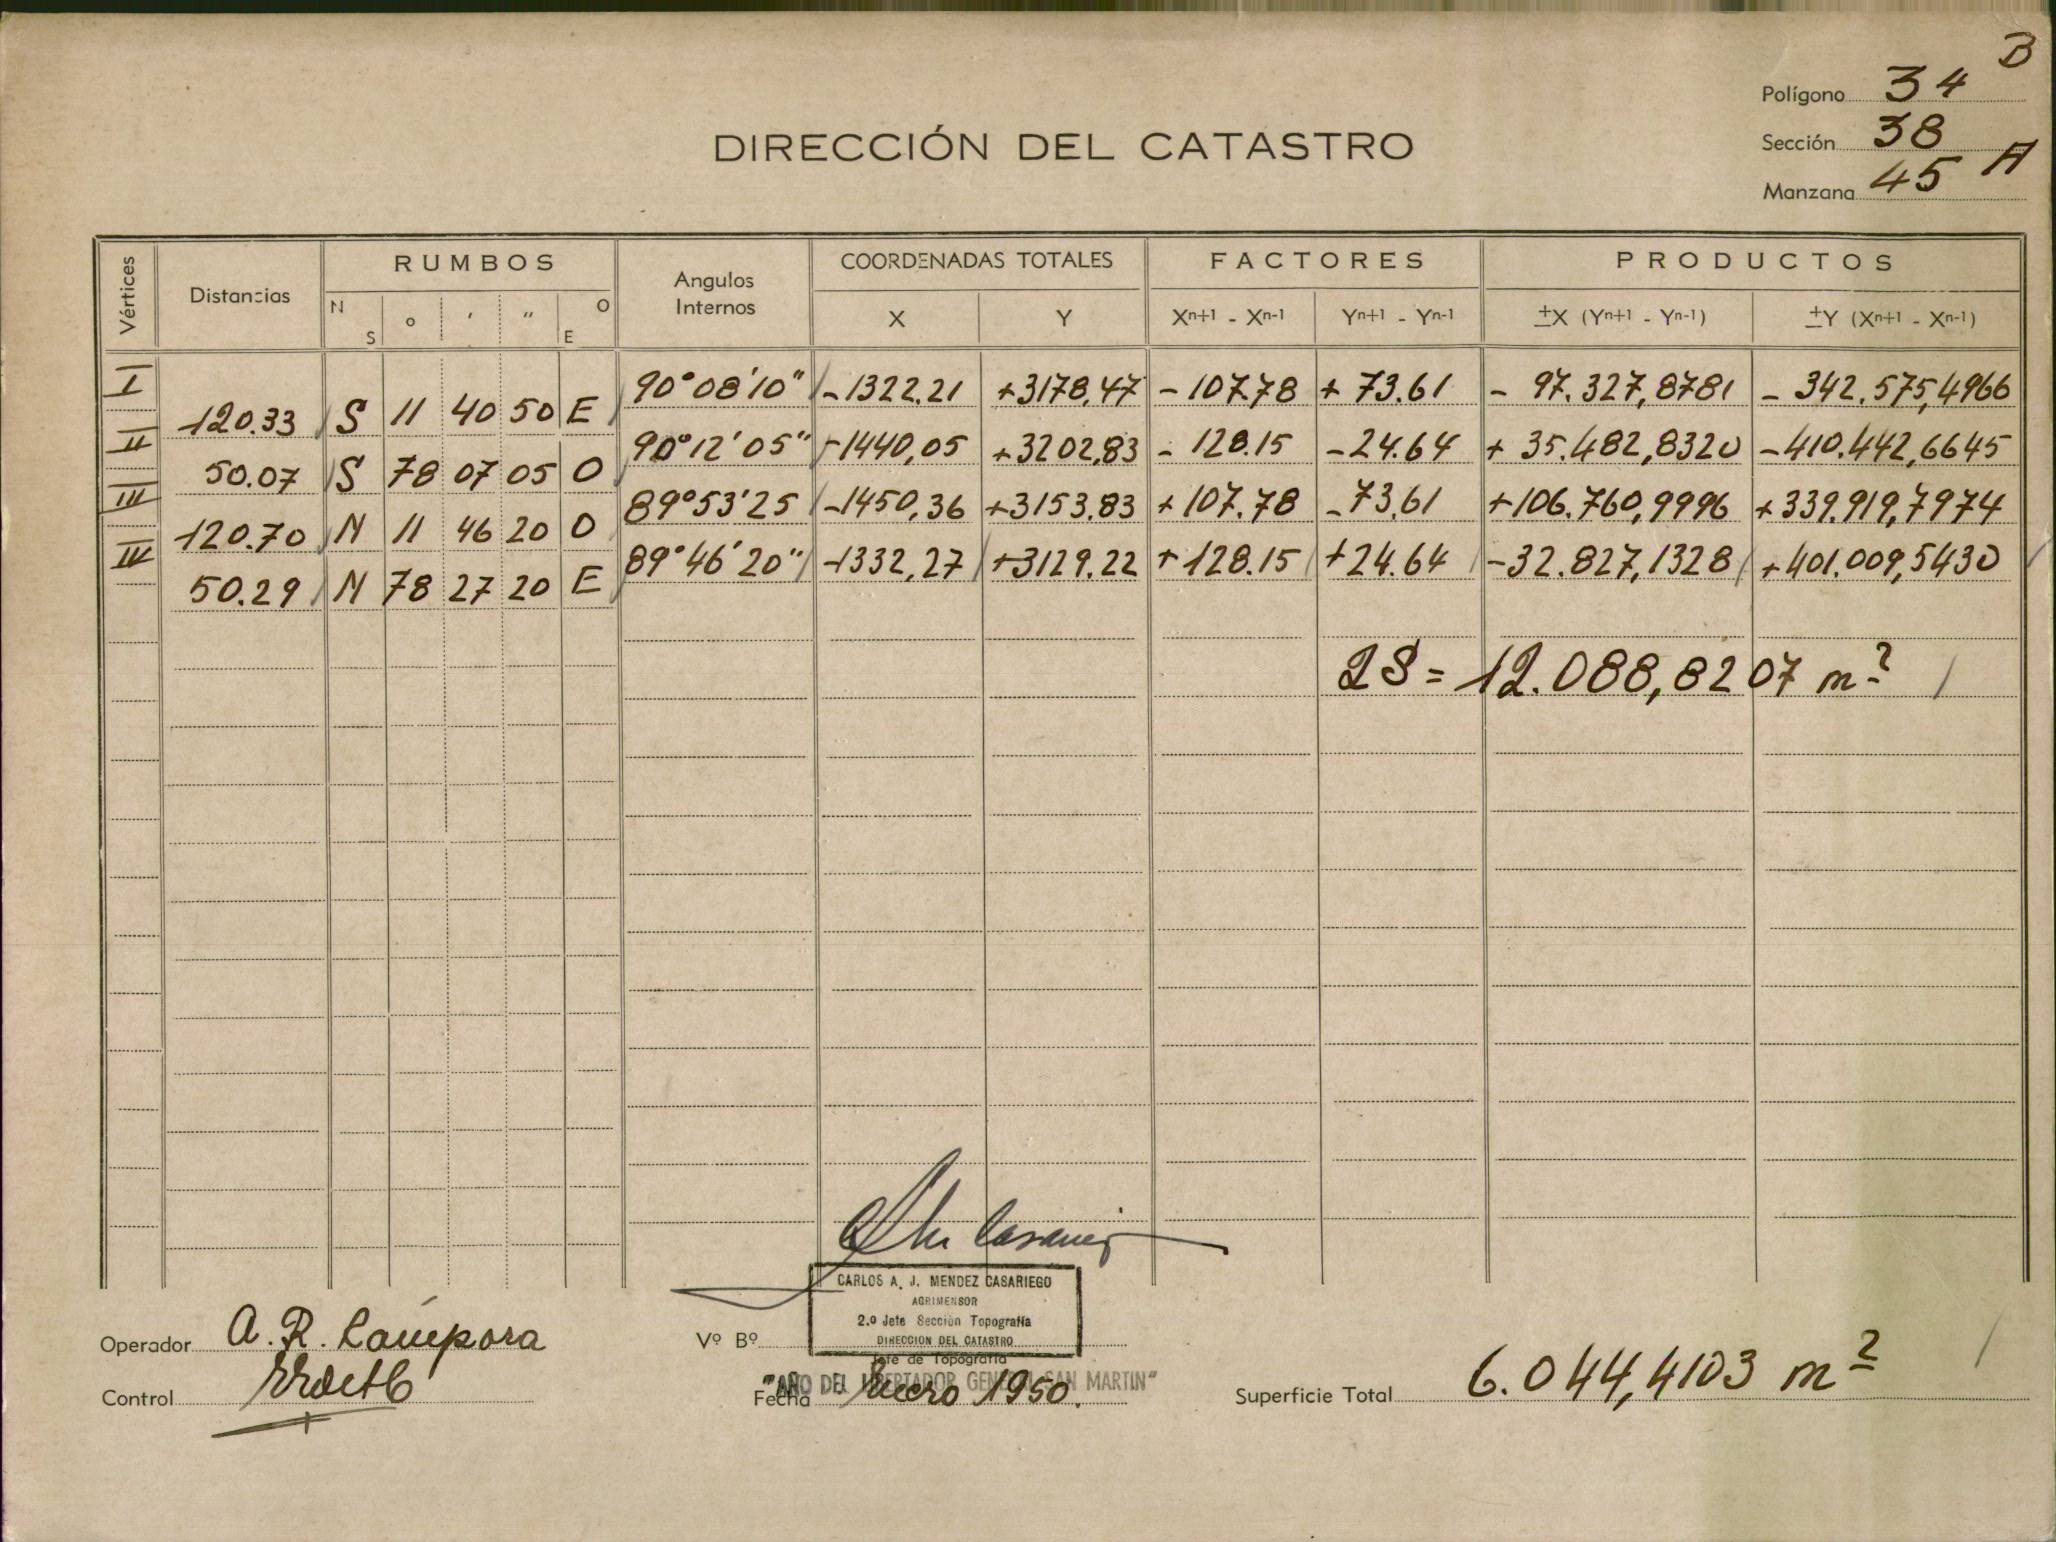 B
Polígono 34
Sección 38
Manzana 45 A
DIRECCIÓN DEL CATASTRO
Vértices Distancias RUMBOS Angulos Internos COORDENADAS TOTALES FACTORES PRODUCTOS
N S ° ' " O E X Y Xn+1 - Xn-1 Yn+1 - Yn-1 ±X (Yn+1 - Yn-1) ±Y (Xn+1 - Xn-1)
I 90°08'10" -1322.21 +3178,47 -107.78 +73.61 -97.327,8781 -342.575,4966
120.33 S 11 40 50 E
II 90°12'05" -1440,05 +3202,83 -128.15 -24.64 +35.482,8320 -410.442,6645
50.07 S 78 07 05 O
III 89°53'25 -1450,36 +3153.83 +107.78 -73.61 +106.760,9996 +339.919,7974
120.70 N 11 46 20 O
IV 89°46'20" -1332,27 +3129.22 +128.15 +24.64 -32.827,1328 +401.009,5430
50.29 N 78 27 20 E
2S = 12.088,8207 m2
CARLOS A. J. MENDEZ CASARIEGO
AGRIMENSOR
2.º Jefe Sección Topografía
DIRECCION DEL CATASTRO
Operador A. R. Cámpora
Vº Bº
Jefe de Topografía
"AÑO DEL LIBERTADOR GENERAL SAN MARTIN"
Control
Fecha Enero 1950.
Superficie Total 6.044,4103 m2